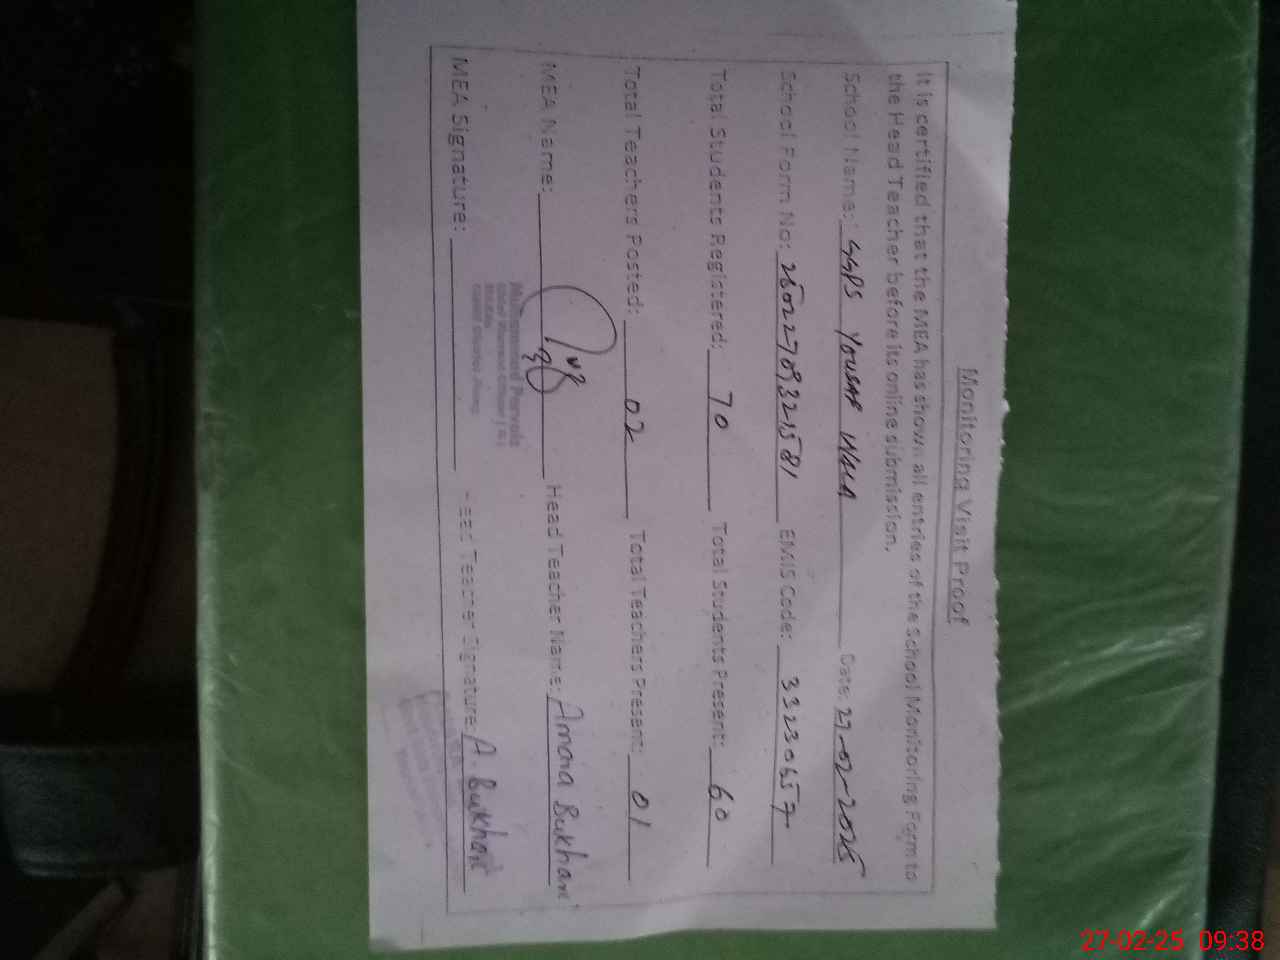 Monitoring Visit Proof
It is certified that the MEA has shown all entries of the School Monitoring Form to
the Head Teacher before its online submission.
School Name: GGPS YOUSAF WALA Date: 27-02-2025
School Form No: EMIS Code: 33230657
Total Students Registered: 70 Total Students Present: 60
Total Teachers Posted: 02 Total Teachers Present: 01
MEA Name: Head Teacher Name: Amara Bukhari
MEA Signature: Head Teacher Signature: A. Bukhari
27-02-25 09:38